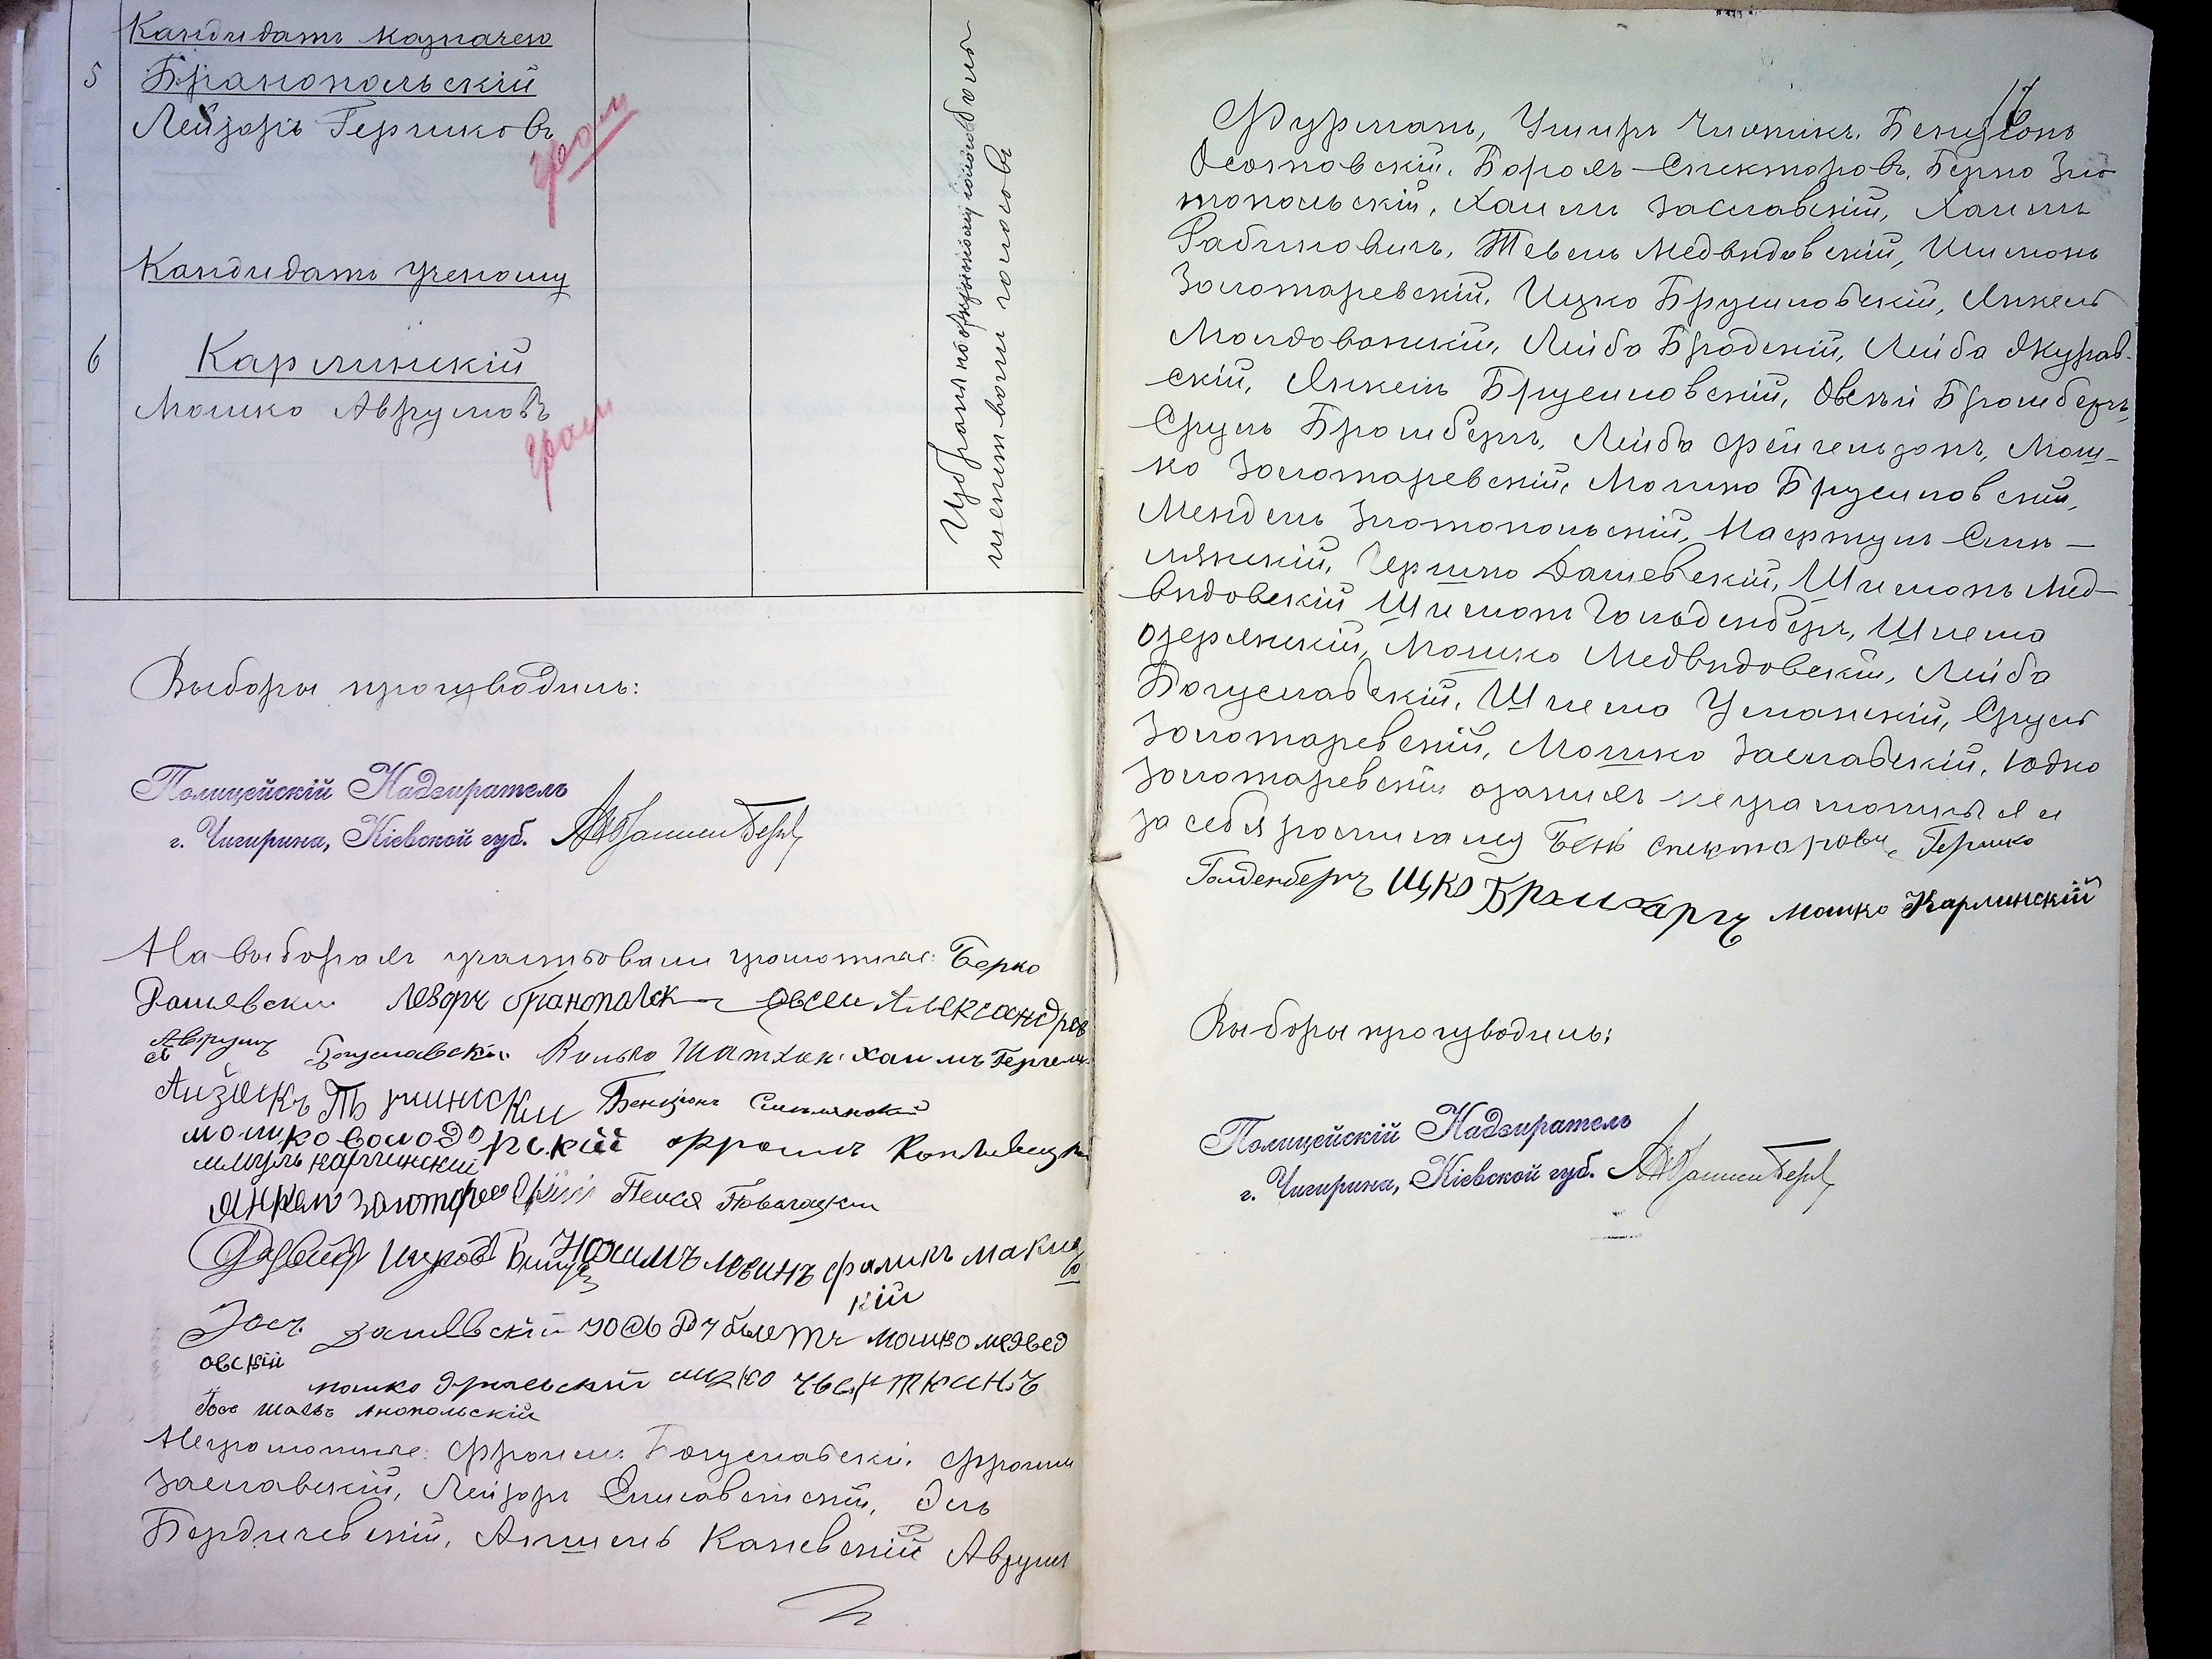 Кандидатъ казначею
5 Бранопольскій
Лейзоръ Гершковъ
грам
Кандидатъ ученому
6 Карлинскій
Мошко Аврумовъ
грам
Избраны по
шинствомъ голосовъ
Выборы производилъ:
Полицейскій Надзиратель
г. Чигирина, Кіевской губ.
На выборахъ участвовали грамотные: Берко
Дашевски Лезоръ Бранополск Овсеи Александров
Аврумъ Богуславскій Волько Шатхин Хаимъ
Айзикъ Бенціонъ Смелянскій
мошко володарскій Фроимъ
шмуль карлинскій
Янкел золотаревскій Пейся Поволоцкии
Давид Ицков Нохимъ левинъ фаликъ
кій
Іось дашевскій мошко медвед
овскій
мошко ицко
Іось Анопольскій
Неграмотные: Фроимъ Богуславскій, Фроимъ
Заславскій, Лейзоръ Елисаветскій, Эль
Бердичевскій, Аншель Каневскій Аврумъ
17
Фурманъ, Умиръ Бенціонъ
Осотовскій, Борохъ Спекторовъ, Берко Зла
топольскій, Хаимъ Заславскій, Хаимъ
Рабиновичъ, Тевель Медвидовскій, Шимонъ
Золотаревскій, Ицко Брусиловскій, Янкель
Молдованскій, Лейба Бродскій, Лейба Журав-
скій, Янкель Брусиловскій, Овсей Бромбергъ,
Сруль Бромбергъ, Лейба Фейгельзонъ, Мош-
ко Золотаревскій, Мошко Брусиловскій,
Мендель Златопольскій, Нафтулъ Смѣ-
лянскій, Гершко Дашевскій, Шимонъ Мед-
видовскій Шимонъ Гольденбергъ, Шлема
Озерянскій, Мошко Медвидовскій, Лейба
Богуславскій, Шлема Уманскій, Сруль
Золотаревскій, Мошко Заславскій, Юдко
Золотаревскій, а за нихъ неграмотныхъ и
за себя росписался Бень Спекторовъ, Гершко
Голденбергъ Ицко Бромбаргъ мошко Карлинскій
Выборы производилъ:
Полицейскій Надзиратель
г. Чигирина, Кіевской губ.